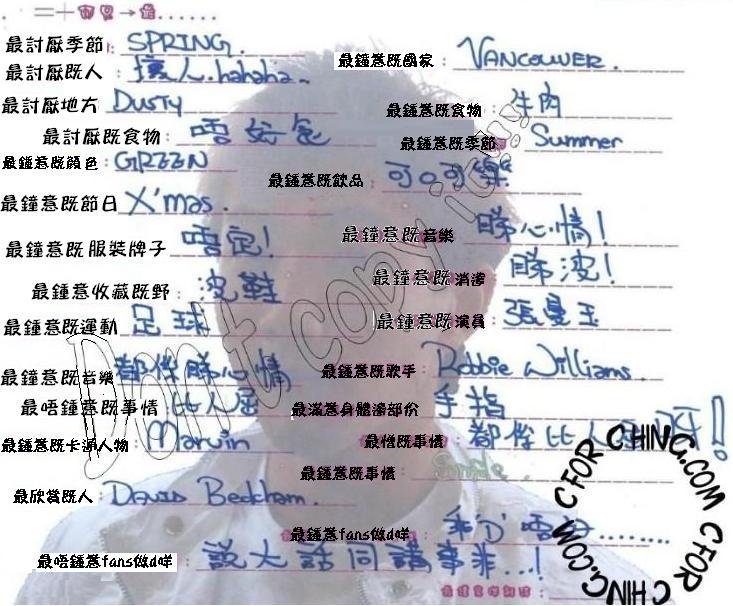 二十四是→最......
最討厭季節: SPRING. 最鐘意既國家: VANCOUVER.
最討厭既人: 壞人.hahaha..
最討厭地方 DUSTY 最鐘意既食物: 牛肉
最討厭既食物: 唔好食 最鐘意既季節 Summer
最鐘意既顏色: GREEN 最鐘意既飲品: 可口可樂
最鐘意既節日 X'mas.
最鐘意既服裝牌子 唔定! 最鐘意既音樂 睇心情!
最鐘意收藏既野: 波鞋 最鐘意既消遣 睇波!
最鐘意既運動 足球 最鐘意既演員: 張曼玉
最鐘意既音樂 都係睇心情 最鐘意既歌手: Robbie Williams.
最唔鐘意既事情: 比人屈 最滿意身體邊部份 手指
最鐘意既卡通人物: Marvin 最憎既事情: 都係比人屈呀!
最鐘意既事情: Smile
最欣賞既人: DAVID Beckham.
最鐘意fans做d咩 乖'D'唔好........
最唔鐘意fans做d咩: 說大話同講事非...!
Don't copy icfc!!
CFOR CHING.COM CFOR CHING.COM CFOR CHING.COM